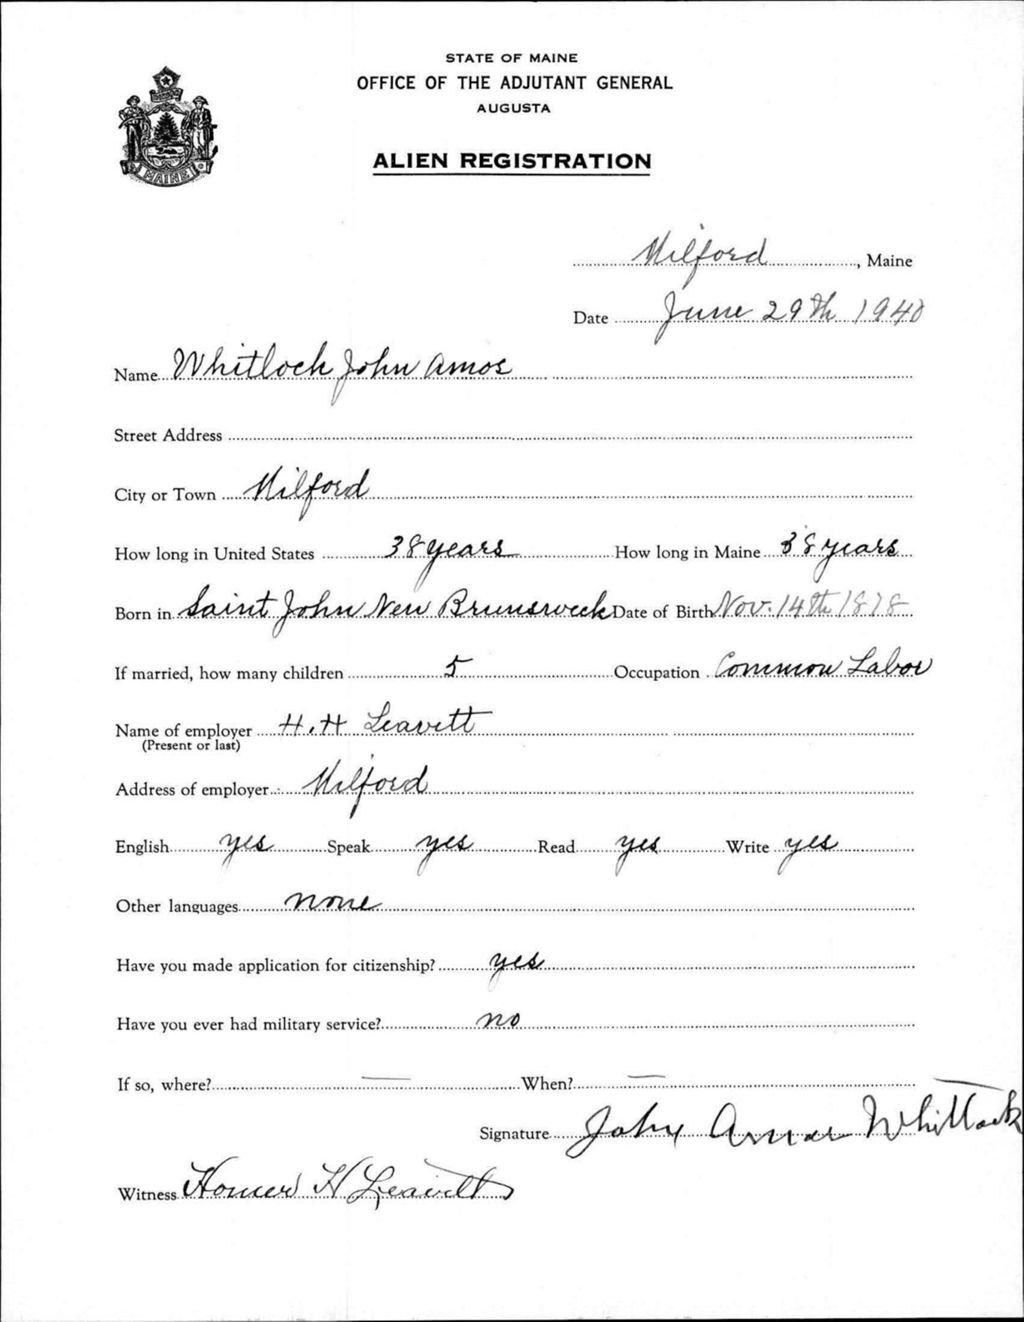 STATE OF MAINE
OFFICE OF THE ADJUTANT GENERAL
AUGUSTA
ALIEN REGISTRATION
MAINE
Milford, Maine
Date June 29th 1940
Name Whitlock John Amos
Street Address
City or Town Milford
How long in United States 38 years How long in Maine 38 years
Born in Saint John New Brunsweck Date of Birth Nov. 14th 1878
If married, how many children 5 Occupation Common Labor
Name of employer H.H Leavitt
(Present or last)
Address of employer Milford
English yes Speak yes Read yes Write yes
Other languages none
Have you made application for citizenship? yes
Have you ever had military service? no
If so, where? — When? —
Signature John Amos Whitlock
Witness Homer H Leavitt